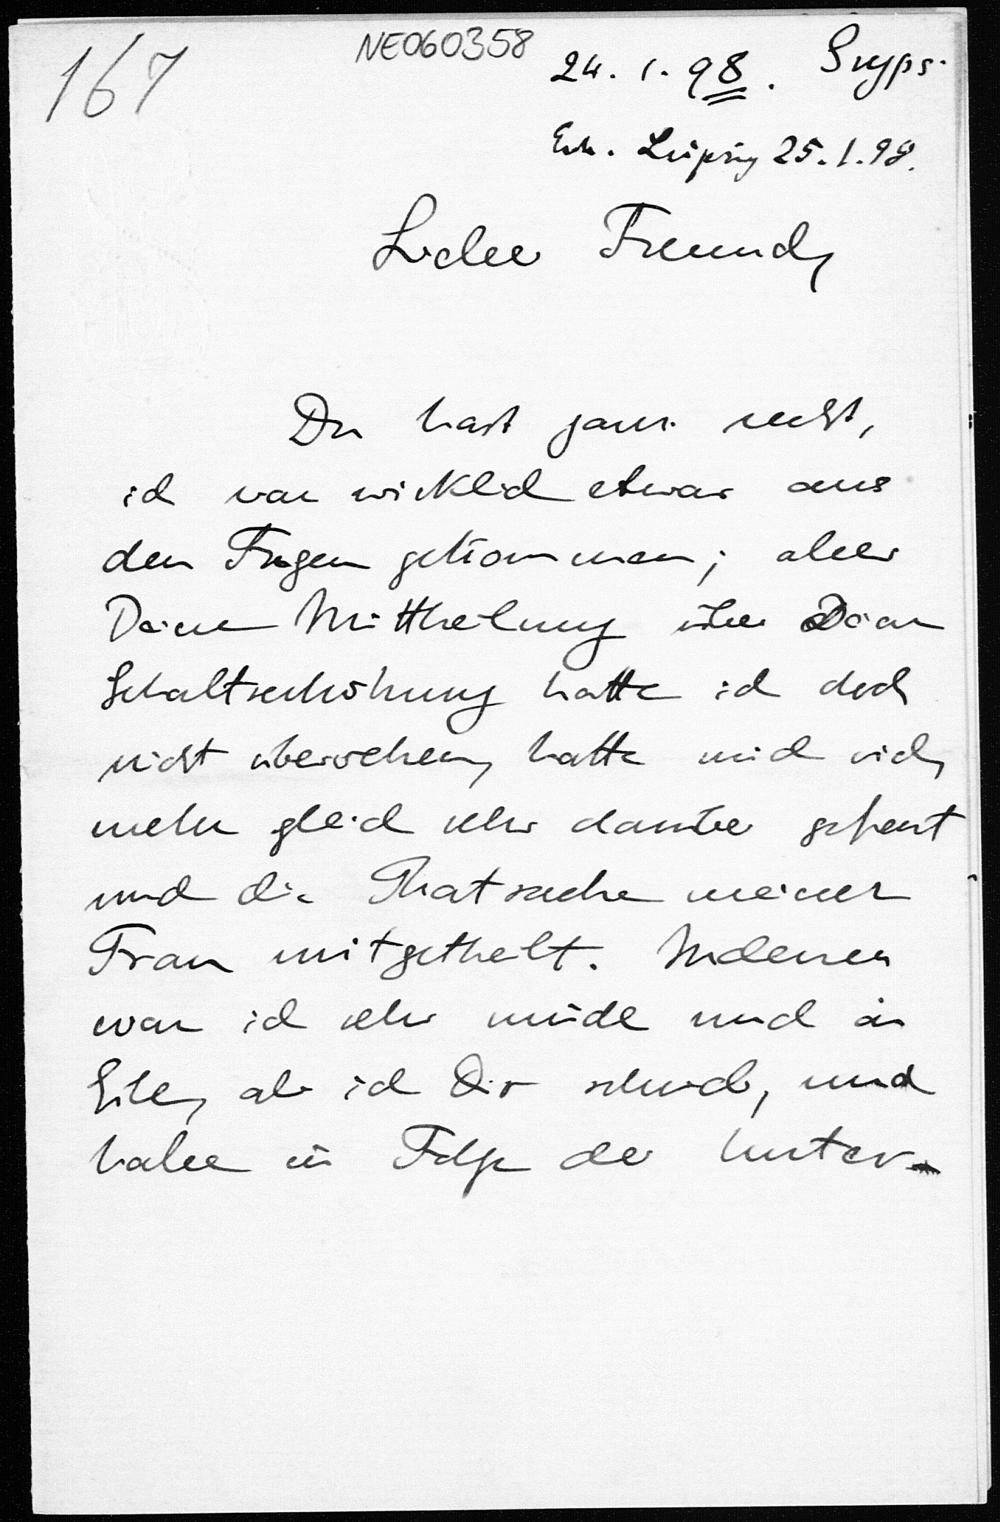 167
NE060358
24. 1. 98.
Erh. Leipzig 25.1.98.
Lieber Freund,
Du hast ganz recht,
ich war wirklich etwas aus
den Fugen gekommen; aber
Deine Mittheilung über Deine
Gehaltserhöhung hatte ich doch
nicht übersehen, hatte mich viel,
mehr gleich sehr darüber gefreut
und die Thatsache meiner
Frau mitgetheilt. Indessen
war ich sehr müde und in
Eile, als ich Dir schrieb, und
habe in Folge der Unter-